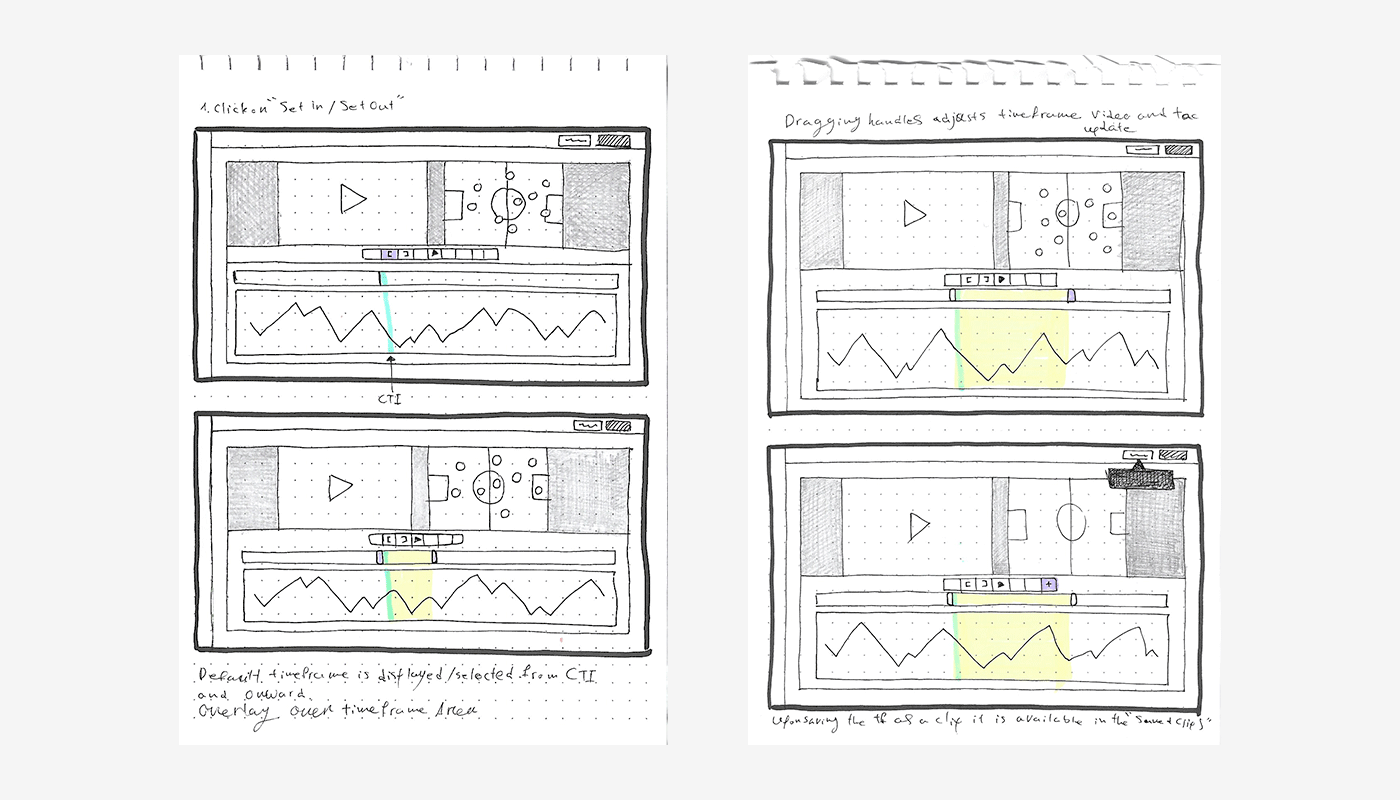 1. Click on "Set in / Set Out"
CTI
Default timeframe is displayed/selected from CTI
and onward.
Overlay over timeframe Area
Dragging handles adjusts timeframe Video and tac
update
Upon saving the tf as a clip it is available in the "Saved Clips"